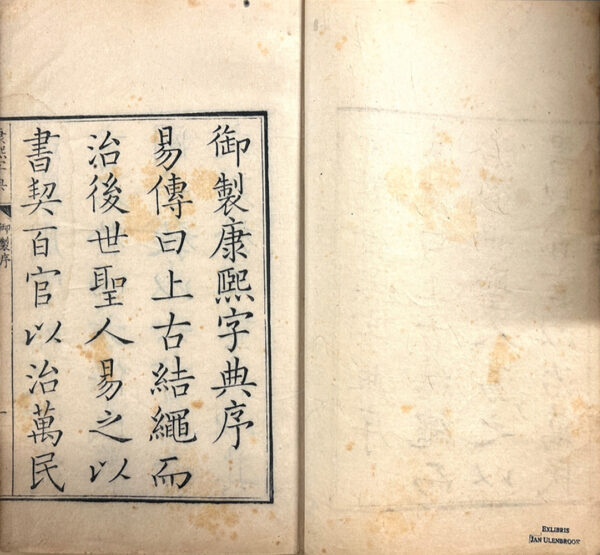 御製康熙字典序
易傳曰上古結繩而
治後世聖人易之以
書契百官以治萬民
康熙字典
御製序
一
EXLIBRIS
JAN ULENBROOK